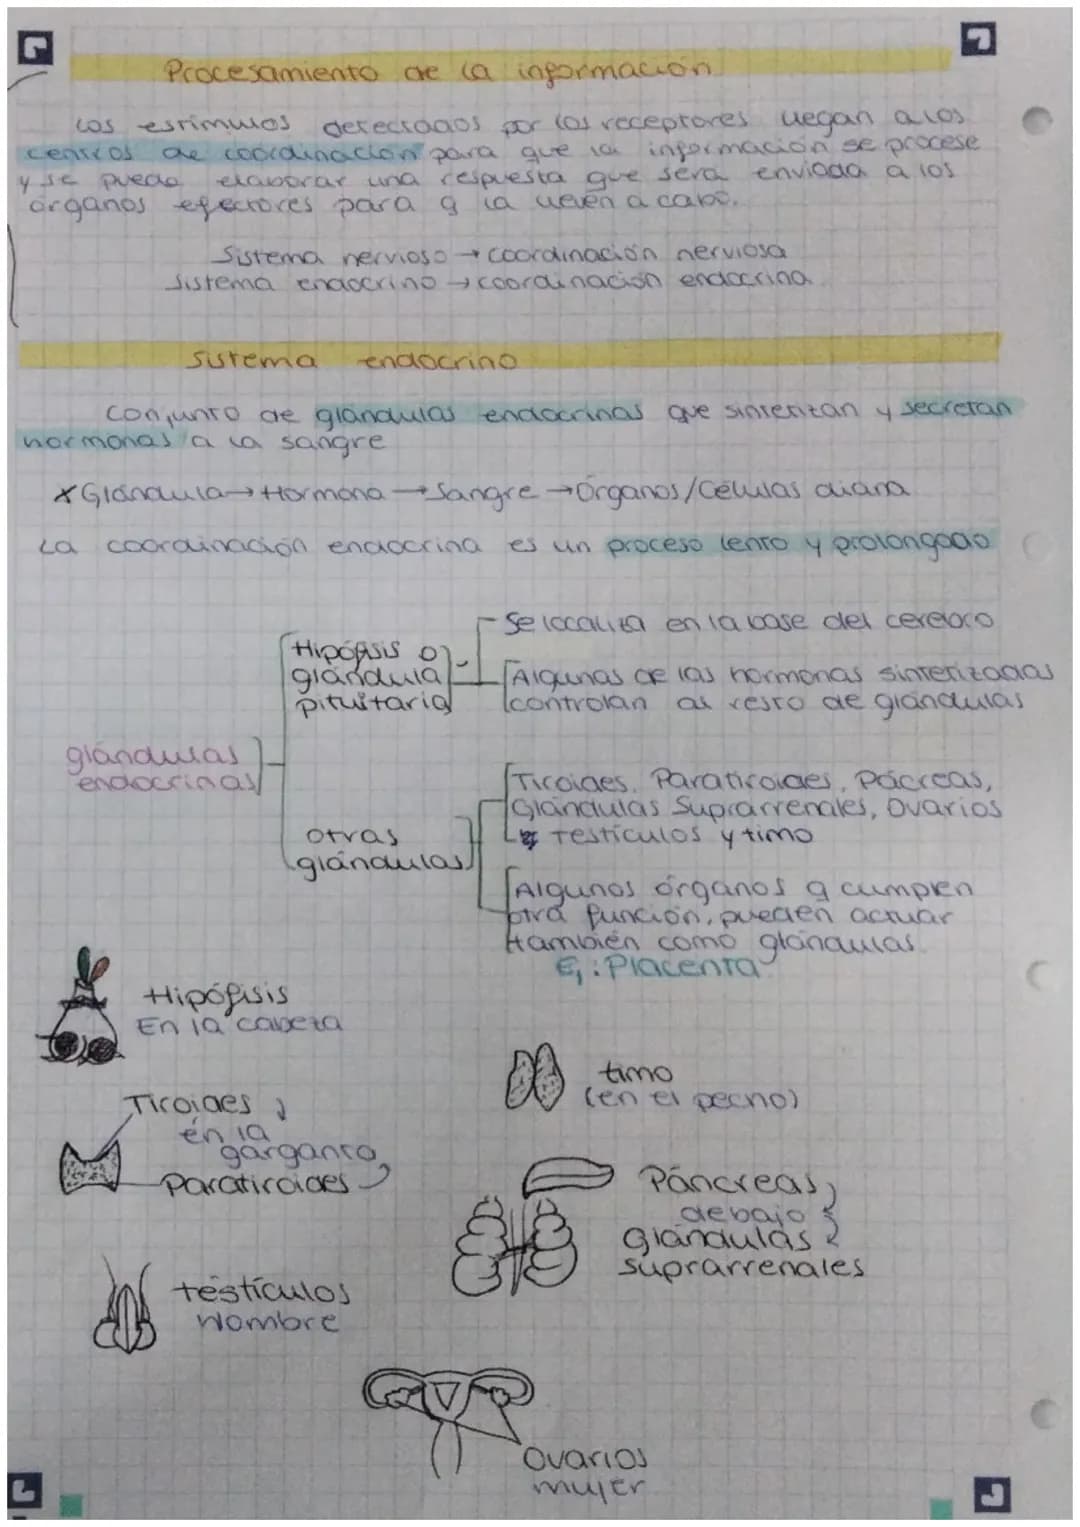 Procesamiento de la información
Los estímulos detectados por los receptores llegan a los
centros de coordinación para que la información se procese
y se pueda elaborar una respuesta que será enviada a los
órganos efectores para q la lleven a cabo.
Sistema nervioso → coordinación nerviosa
Sistema endocrino → coordinación endocrina
Sistema endocrino
Conjunto de glándulas endocrinas que sintetizan y secretan
hormonas a la sangre
* Glándula → Hormona → Sangre → Órganos/Células diana
La coordinación endocrina es un proceso lento y prolongado
Se localiza en la base del cerebro
Hipófisis o
glándula
pituitaria
Algunas de las hormonas sintetizadas
controlan al resto de glándulas
glándulas
endocrinas
Tiroides, Paratiroides, Pácreas,
Glándulas Suprarrenales, Ovarios
testículos y timo
otras
glándulas
Algunos órganos q cumplen
otra función, pueden actuar
también como glándulas.
Ej: Placenta
Hipófisis
En la cabeza
timo
(en el pecho)
Tiroides
en la
garganta
Paratiroides
Páncreas
debajo
glándulas
suprarrenales
testículos
Hombre
Ovarios
mujer